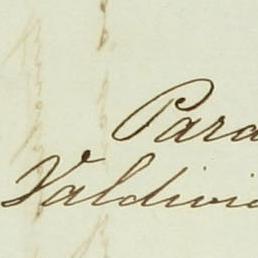 Para
Valdivi